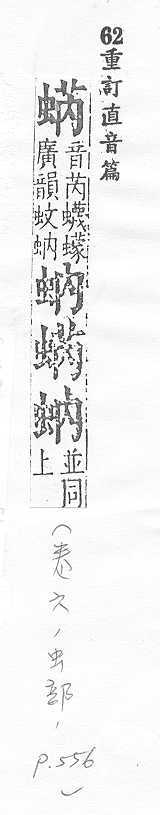 62重訂直音篇
蜹音芮蠛蠓
廣韻蚊蚋
蚋
並同
上
(卷六,虫部,
p.556